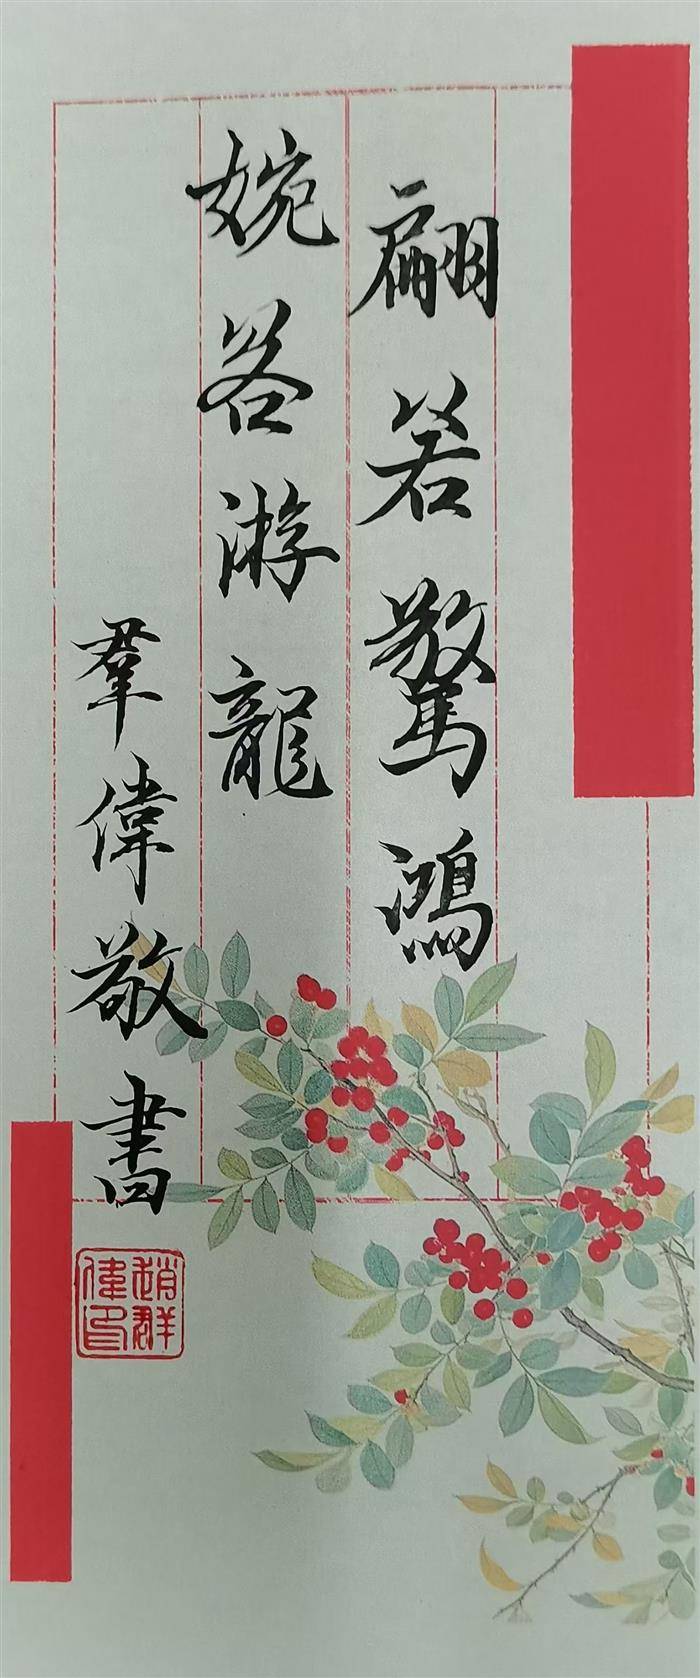 翩若驚鴻
婉若游龍
羣偉敬書
趙群偉印